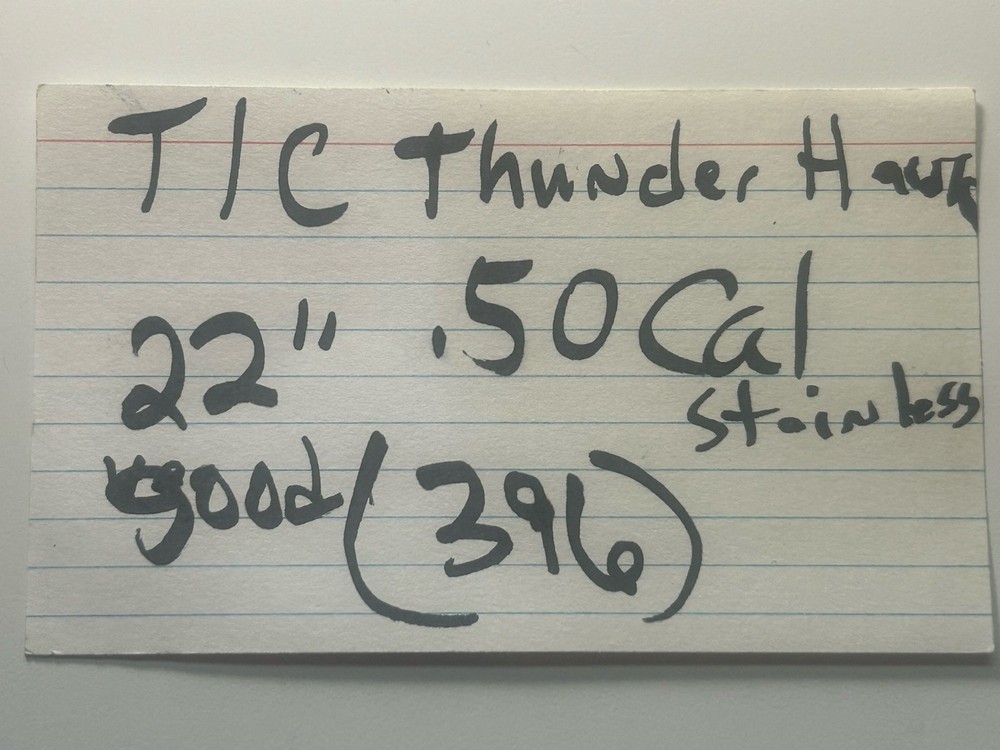 T/C Thunder Hawk
22" .50 Cal
stainless
good (396)